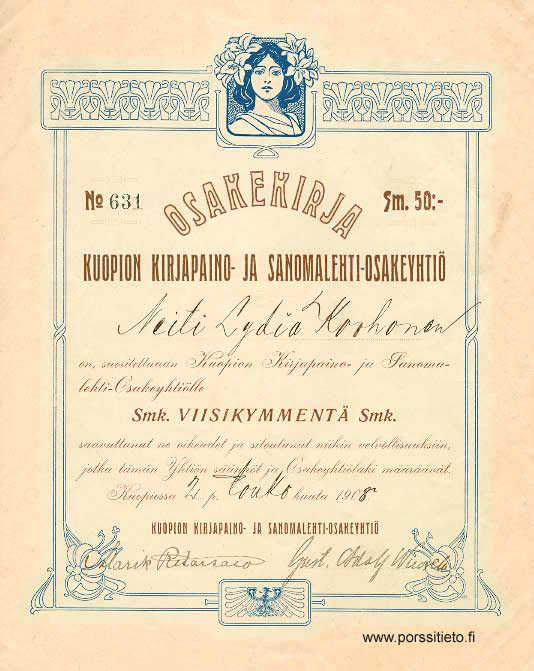 No 631
OSAKEKIRJA
Smk. 50:-
KUOPION KIRJAPAINO- JA SANOMALEHTI-OSAKEYHTIÖ
Neiti Lydia Korhonen
on, suoritettuaan Kuopion Kirjapaino- ja Sanoma-
lehti-Osakeyhtiölle
Smk. VIISIKYMMENTÄ Smk.
saavuttanut ne oikeudet ja sitoutunut niihin velvollisuuksiin,
jotka tämän Yhtiön säännöt ja Osakeyhtiölaki määräävät.
Kuopiossa 2 p. touko kuuta 1908
KUOPION KIRJAPAINO- JA SANOMALEHTI-OSAKEYHTIÖ
Gust. Adolf
www.porssitieto.fi